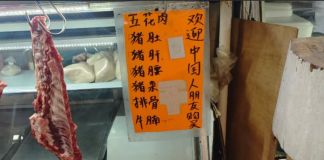 五花肉
猪肚
猪肝
猪腰
猪条
排骨
牛腩
欢迎中国人朋友购买